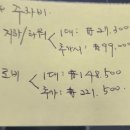 주차비
지하/타워 < 1대: ₩27,300
추가시: ₩99,000
로비 < 1대: ₩148,500
추가: ₩221,500